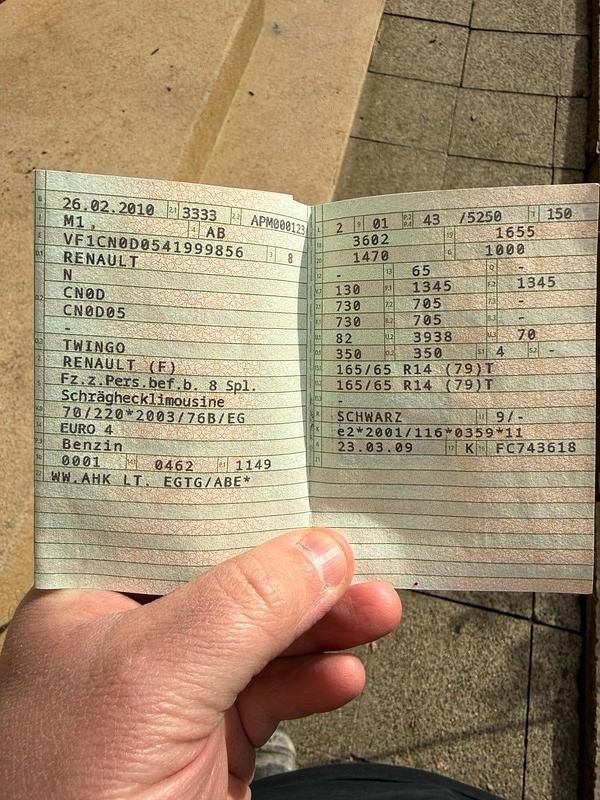 26.02.2010 3333 APM000123
M1, AB
VF1CN0D0541999856 8
RENAULT
N
CN0D
CN0D05
-
TWINGO
RENAULT (F)
Fz.z.Pers.bef.b. 8 Spl.
Schräghecklimousine
70/220*2003/76B/EG
EURO 4
Benzin
0001 0462 1149
WW.AHK LT. EGTG/ABE*
2 01 43 /5250 150
3602 1655
1470 1000
- 65 -
130 1345 1345
730 705 -
730 705 -
82 3938 70
350 350 4 -
165/65 R14 (79)T
165/65 R14 (79)T
-
SCHWARZ 9/-
e2*2001/116*0359*11
23.03.09 K FC743618